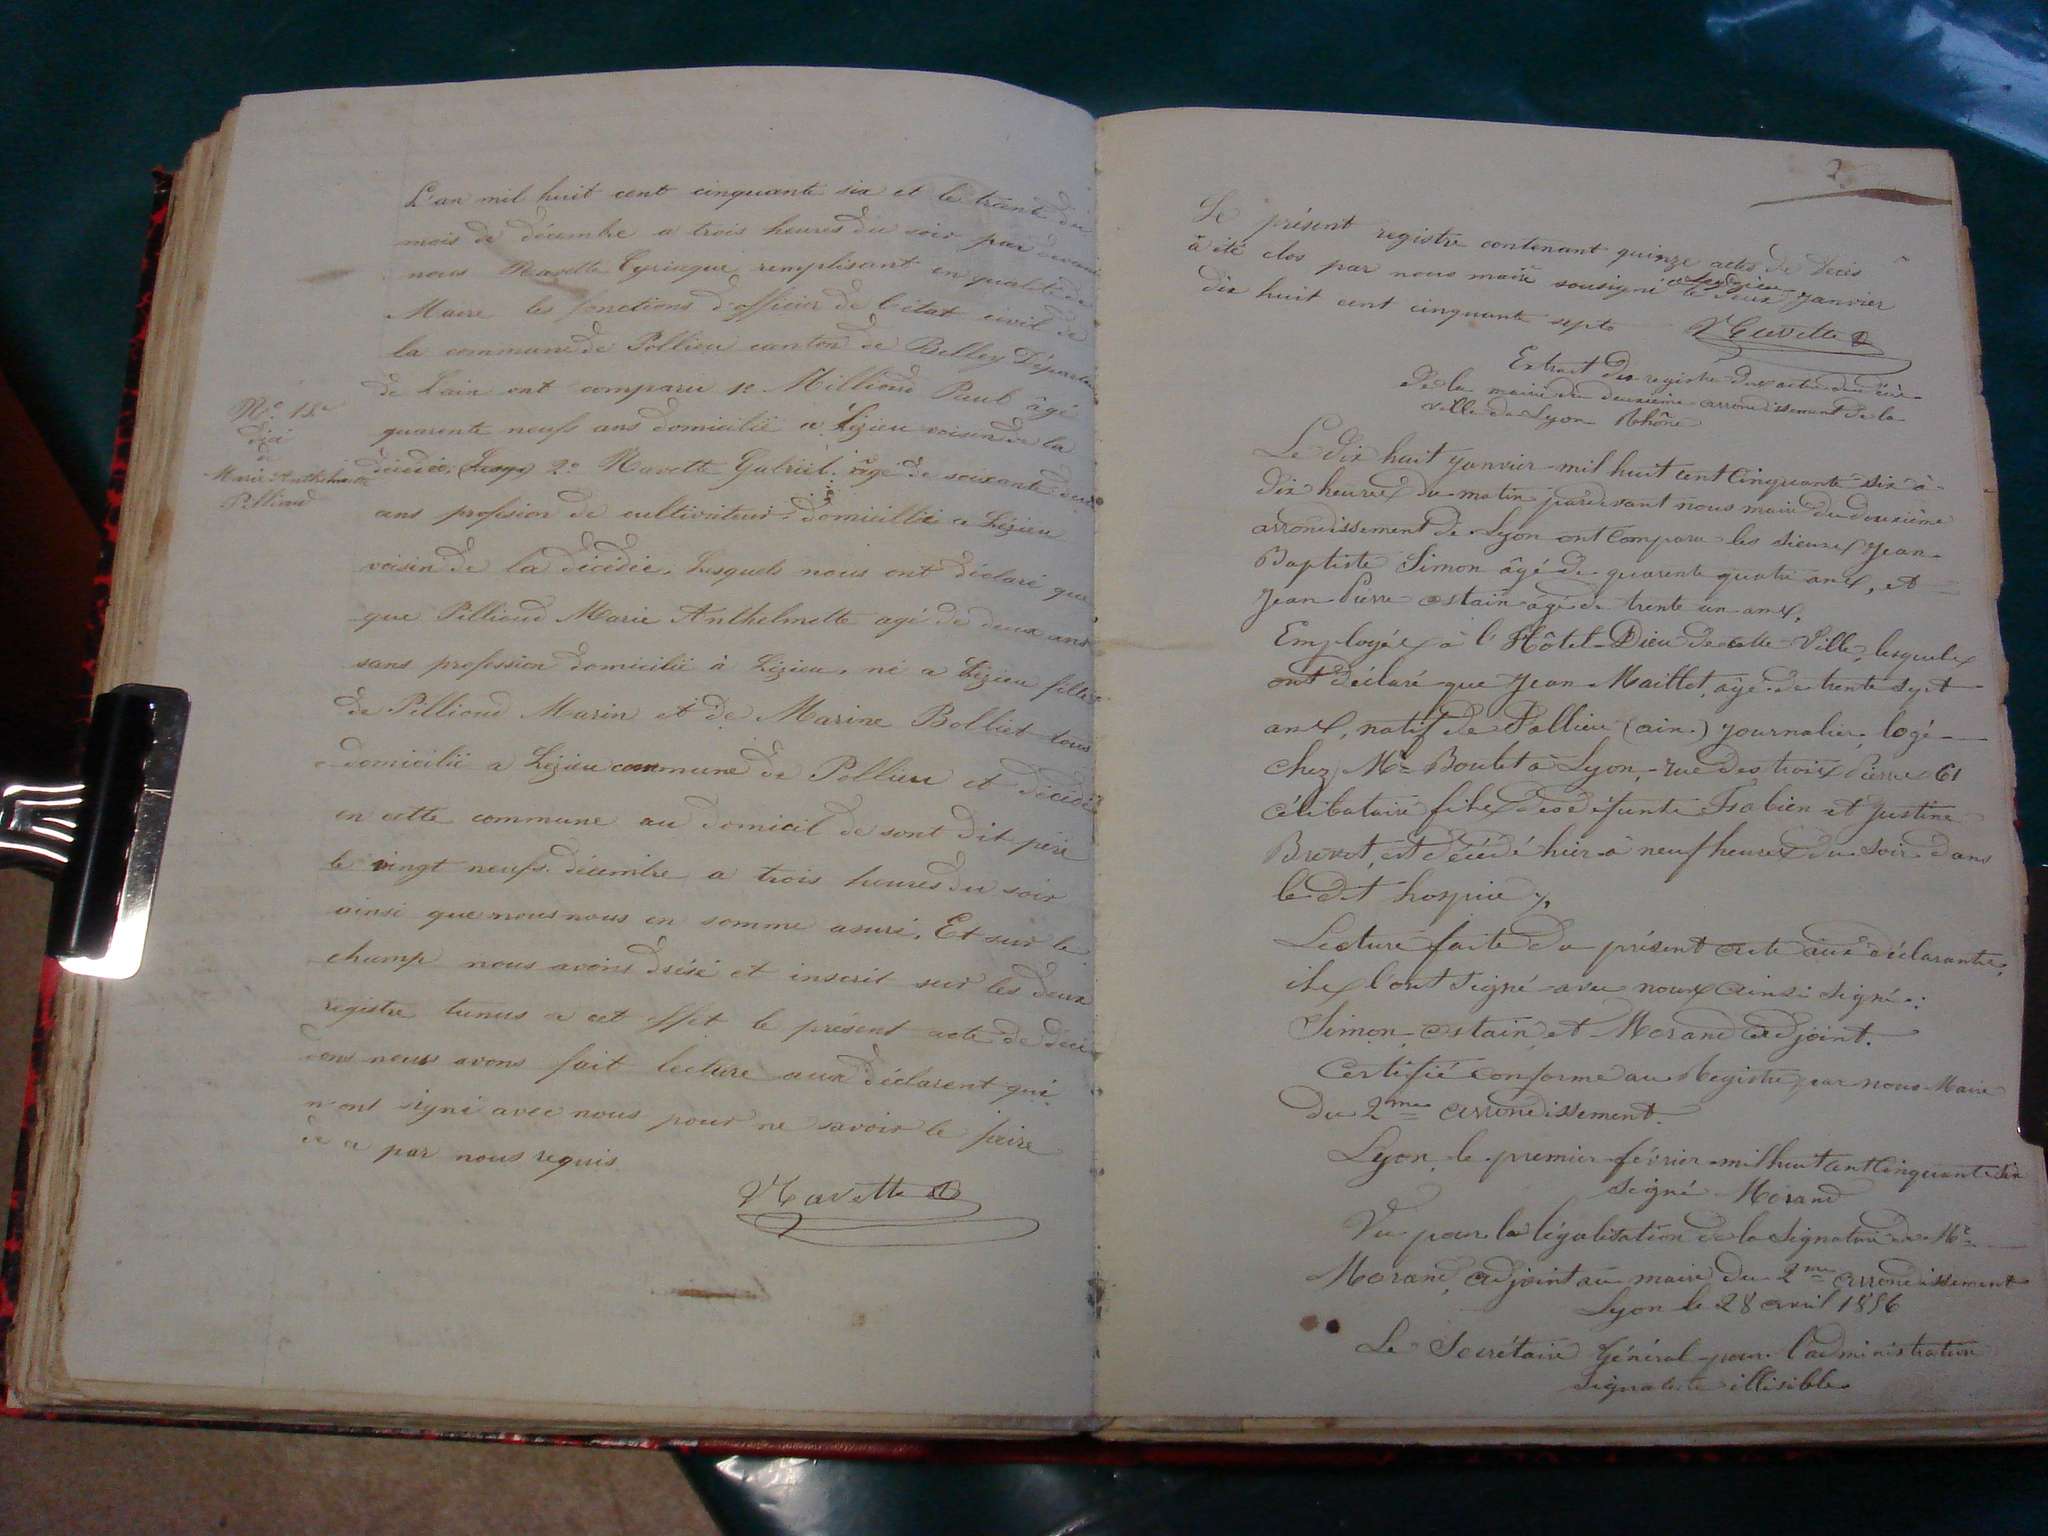 L'an mil huit cent cinquante six et le trente du
mois de décembre a trois heures du soir par devant
nous Navette Cyriaque remplisant en qualité de
Maire les fonctions d'officier de l'état civil de
la commune de Pollieu canton de Belley Départem
de Lain ont comparu 1e Milliond Paul âgé
quarente neufs ans domicilié a Lizieu voisin de la
décédée, 2e Navette Gabriel âgé de soixante deux
ans profesion de cultivateur domicillié a Lizieu
voisin de la décédée, Lesquels nous ont déclaré que
que Pilliond Marie Anthelmette agé de deux ans
sans profession domicilié à Lizieu, né a Lizieu fille
de Pilliond Marin et de Marine Bolliet tous
domicilié a Lizieu commune de Pollieu et décédé
en cette commune au domicil de sont dit père
le vingt neufs décembre a trois heures du soir
ainsi que nous nous en somme asuré, Et sur le
champ nous avons drésé et inscrit sur les deux
registre tenus a cet effet le présent acte de décè
dons nous avons fait lecture aux déclarent qui
n'ont signé avec nous pour ne savoir le faire
de a par nous requis
Navette
No 15e
déci
de
Marie Anthelmette
Pilliond
2
Le présent registre contenant quinze actes de Décès
à été clos par nous maire sousigné le deux janvier
dix huit cent cinquante septe
Navette
Extrait du registre des actes de décè
De la mairie du deuxième arrondissement de la
ville de Lyon Rhône
Le dix huit janvier mil huit cent cinquante six à
dix heures du matin pardevant nous maire du deuxième
arrondissement de Lyon ont comparu les sieurs Jean
Baptiste Simon âgé de quarente quatre ans, et
Jean Pierre Astain âgé de trente un ans,
Employés à l'Hôtel-Dieu de cette Ville, lesquels
ont déclaré que Jean Maillet, âgé de trente sept
ans, natif de Pollieu (ain) journalier, logé
chez Mr Boulet à Lyon, rue des trois Pierres 61
célibataire fils des défunts Fabien et Justine
Brevet, est décédé hier à neuf heures du soir dans
le dit hospice
Lecture faite du présent acte aux déclarants,
ils l'ont signé avec nous ainsi signé:
Simon, Astain et Morand adjoint.
Certifié conforme au Registre par nous Maire
du 2me arrondissement.
Lyon, le premier février mil huit cent cinquante six
signé Morand
Vu pour la légalisation de la signature de Mr
Morand, adjoint au maire du 2me arrondissement
Lyon le 28 avril 1856
Le Secrétaire Général pour l'administration
signature illisible